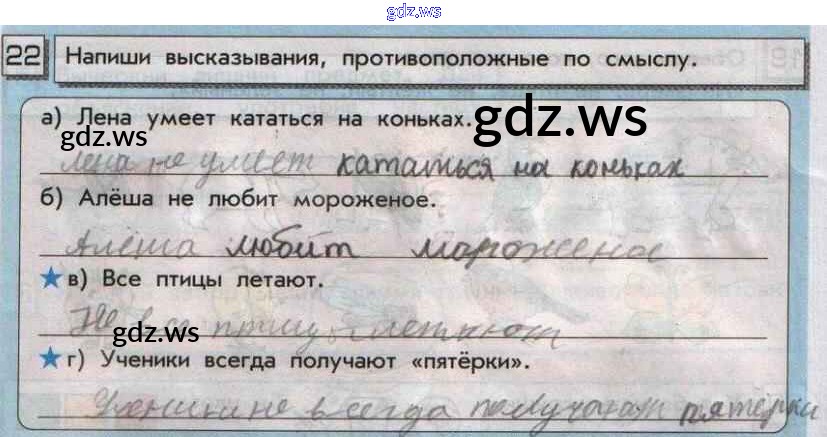 gdz.ws
22 Напиши высказывания, противоположные по смыслу.
а) Лена умеет кататься на коньках. gdz.ws
gdz.ws
Лена не умеет кататься на коньках
б) Алёша не любит мороженое.
Алёша любит мороженое
★ в) Все птицы летают.
Не все птицы летают
gdz.ws
★ г) Ученики всегда получают «пятёрки».
Ученики не всегда получают пятёрки